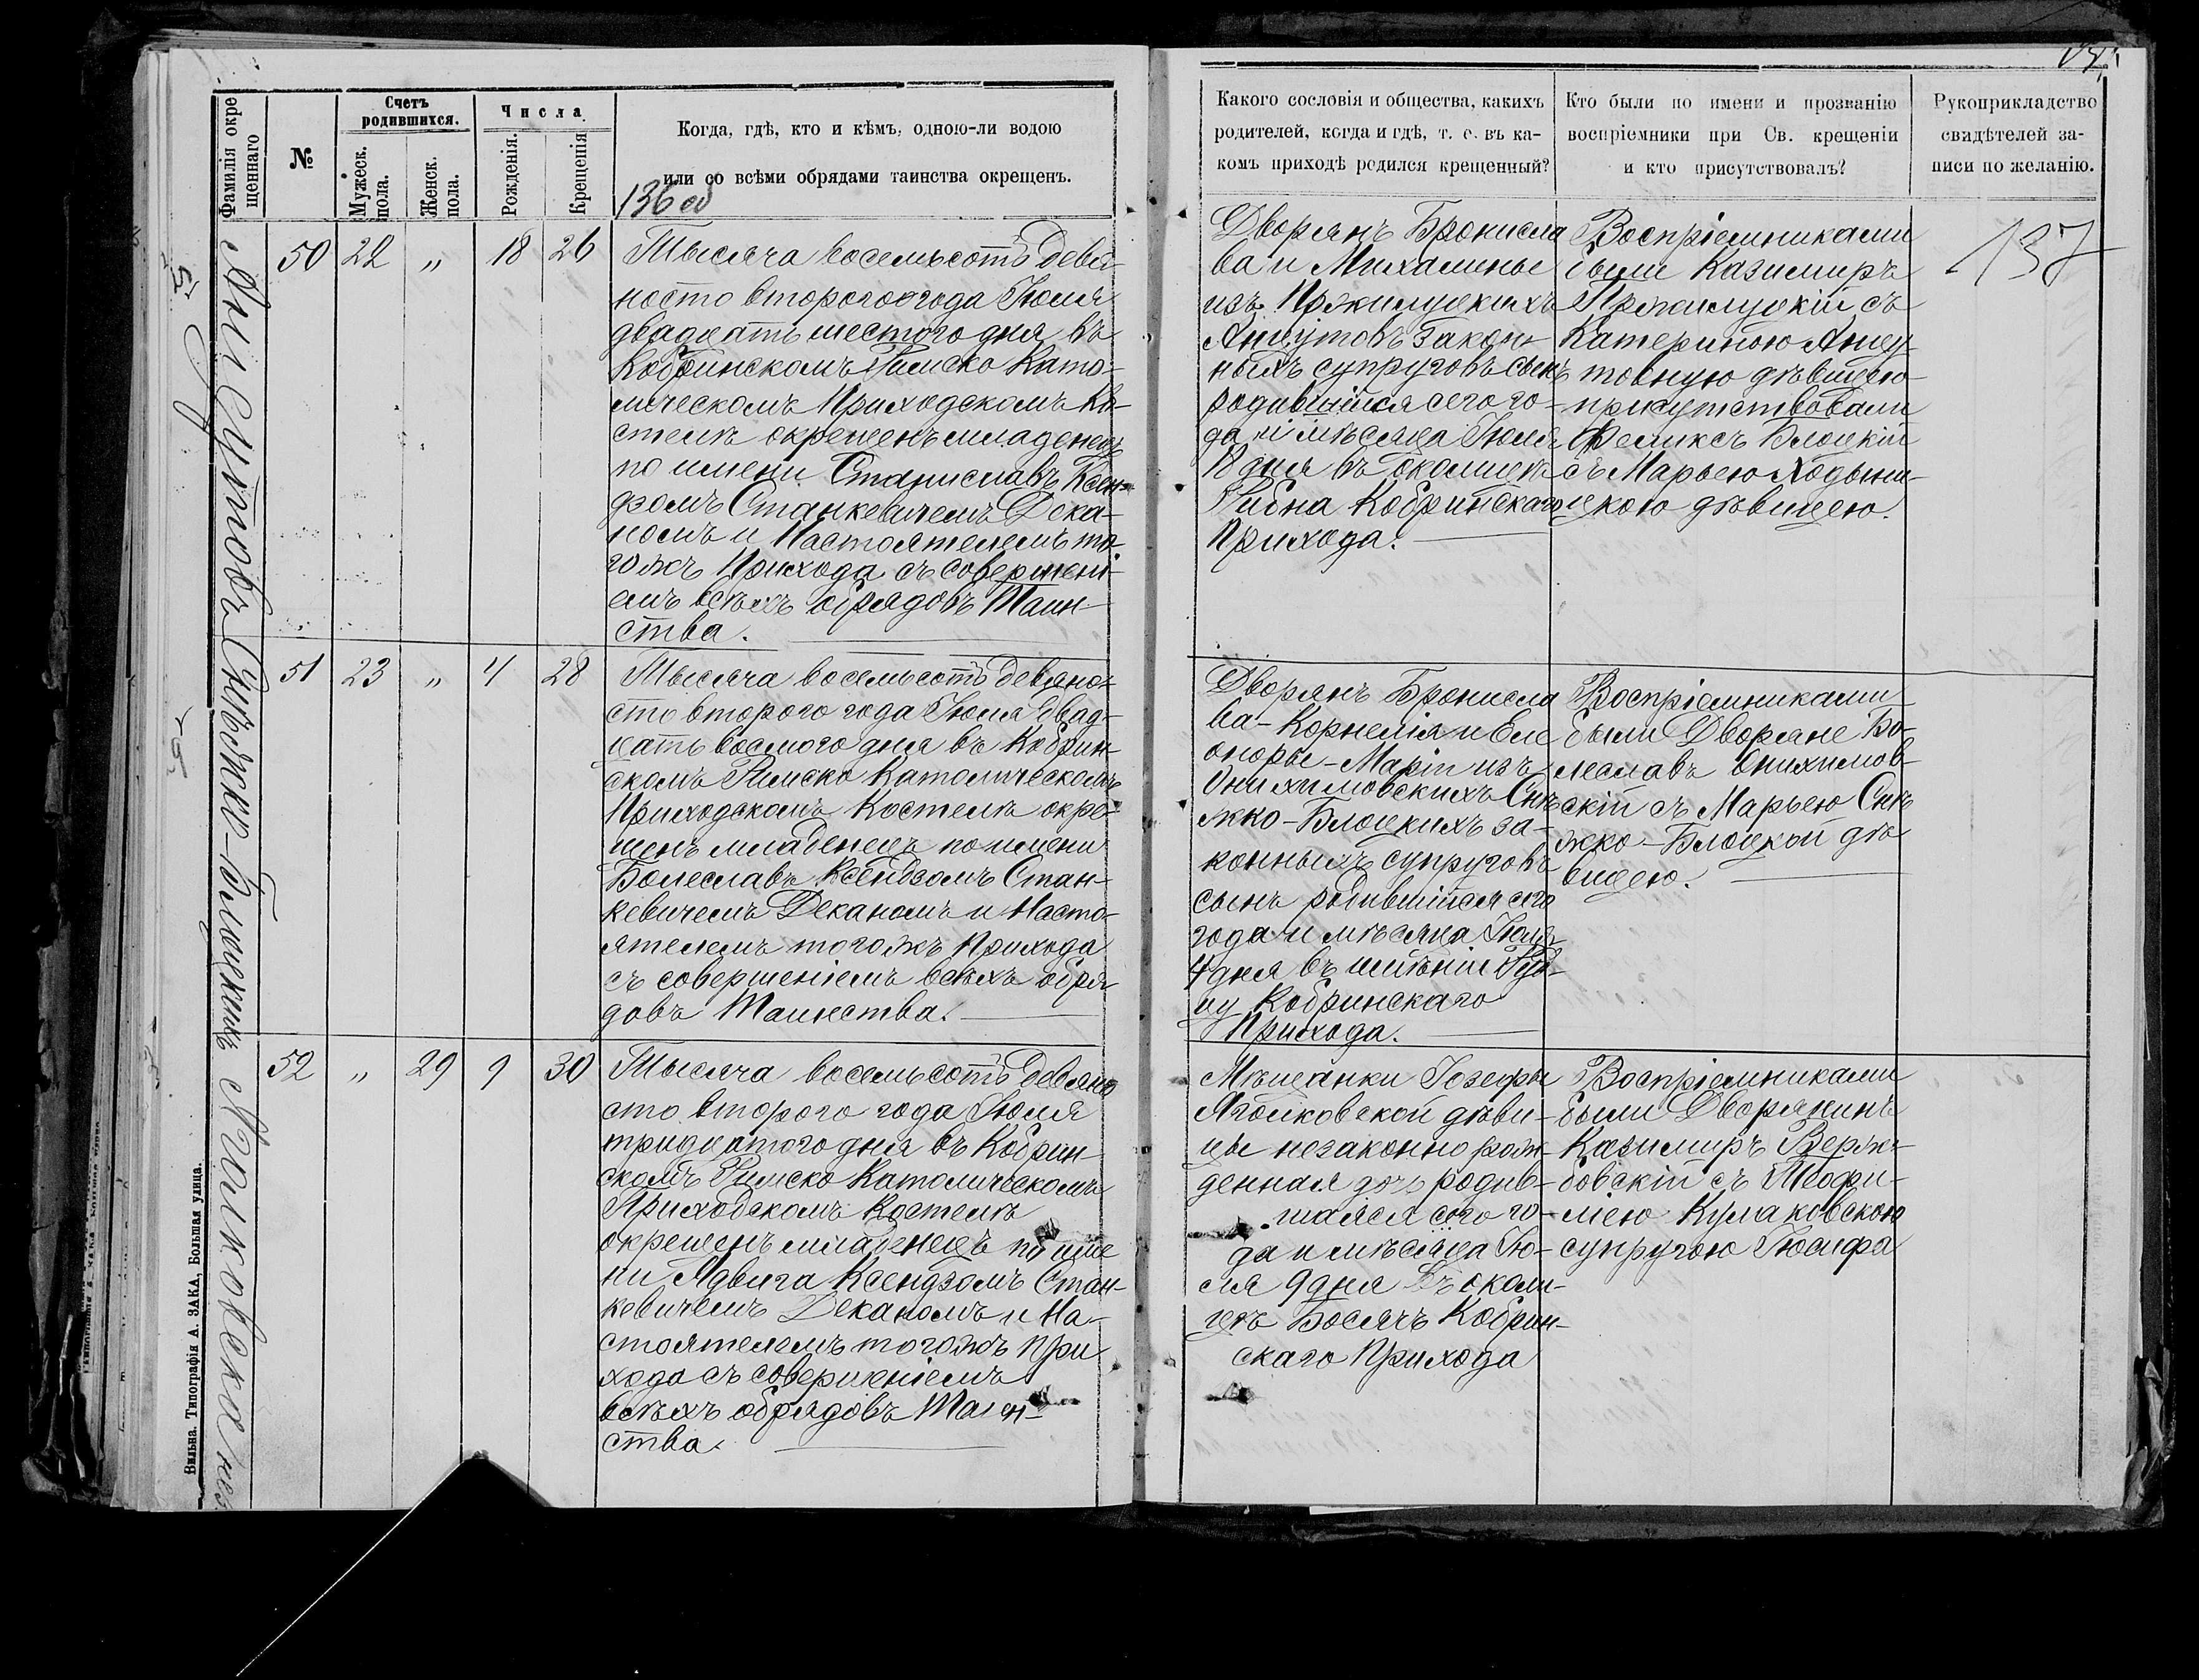 Фамилія окре
щеннаго
№
Счетъ
родившихся.
Мужеск.
пола.
Женск.
пола.
Числа
Рожденія.
Крещенія
Когда, гдѣ, кто и кѣмъ, одною-ли водою
или со всѣми обрядами таинства окрещенъ.
136 об
50
22
„
18
26
Тысяча восемьсотъ девя-
носто второго года Іюля
двадцать шестого дня въ
Кобринскомъ Римско Като-
лическомъ Приходскомъ Ко-
стелѣ окрещенъ младенецъ
по имени Станиславъ Ксен-
дзомъ Станкевичемъ Дека-
номъ и Настоятелемъ то-
гожъ Прихода съ совершені-
емъ всѣхъ обрядовъ Таин-
ства.
51
23
„
4
28
Тысяча восемьсотъ девяно-
сто второго года Іюля двад-
цать восмого дня въ Кобрин-
скомъ Римско Католическомъ
Приходскомъ Костелѣ окре-
щенъ младенецъ по имени
Болеславъ Ксендзомъ Стан-
кевичемъ Деканомъ и Насто-
ятелемъ тогожъ Прихода
съ совершеніемъ всѣхъ обря-
довъ Таинства.
52
„
29
9
30
Тысяча восемьсотъ девяно
сто второго года Іюля
тридцатого дня въ Кобрин-
скомъ Римско Католическомъ
Приходскомъ Костелѣ
окрещенъ младенецъ по име
ни Ядвига Ксендзомъ Стан-
кевичемъ Деканомъ и На-
стоятелемъ тогожъ При
хода съ совершеніемъ
всѣхъ обрядовъ Таин-
ства.
Снѣжко-Блоцкій
Вильна. Типографія А. ЗАКА, Большая улица.
Какого сословія и общества, какихъ
родителей, когда и гдѣ, т. е. въ ка-
комъ приходѣ родился крещенный?
Кто были по имени и прозванію
воспріемники при Св. крещеніи
и кто присутствовалъ?
Рукоприкладство
свидѣтелей за-
писи по желанію.
137
Дворянъ Бронисла
ва и Михалины
изъ Пржилуцкихъ
Янцутовъ закон-
ныхъ супруговъ сынъ
родившійся сего го-
да и мѣсяца Іюля
18 дня въ околицѣ
Рибна Кобринскаго
Прихода.
Воспріемниками
были Казимиръ
Пржилуцкій съ
Катериною Янцу-
товную дѣвицею
присутствовали
Феликсъ Блоцкій
съ Марьею Ходыни-
цкою дѣвицею.
Дворянъ Бронисла
ва-Корнелія и Еле
оноры-Маріи изъ
Онихимовскихъ Снѣ
жко-Блоцкихъ за-
конныхъ супруговъ
сынъ родившійся сего
года и мѣсяца Іюля
4 дня въ имѣніи
Кобринскаго
Прихода.
Воспріемниками
были Дворяне Бо-
леславъ Онихимов-
скій съ Марьею Снѣ
жко-Блоцкой дѣ-
вицею.
Мѣщанки Іозефы
дѣви-
цы незаконно рож-
денная дочь родив-
шаяся сего го-
да и мѣсяца Ію-
ля 9 дня въ околи-
цѣ Босячъ Кобрин-
скаго Прихода
Воспріемниками
были Дворянинъ
Казимиръ Верж-
бовскій съ Теофи-
лею Кулаковскою
супругою Іосифа